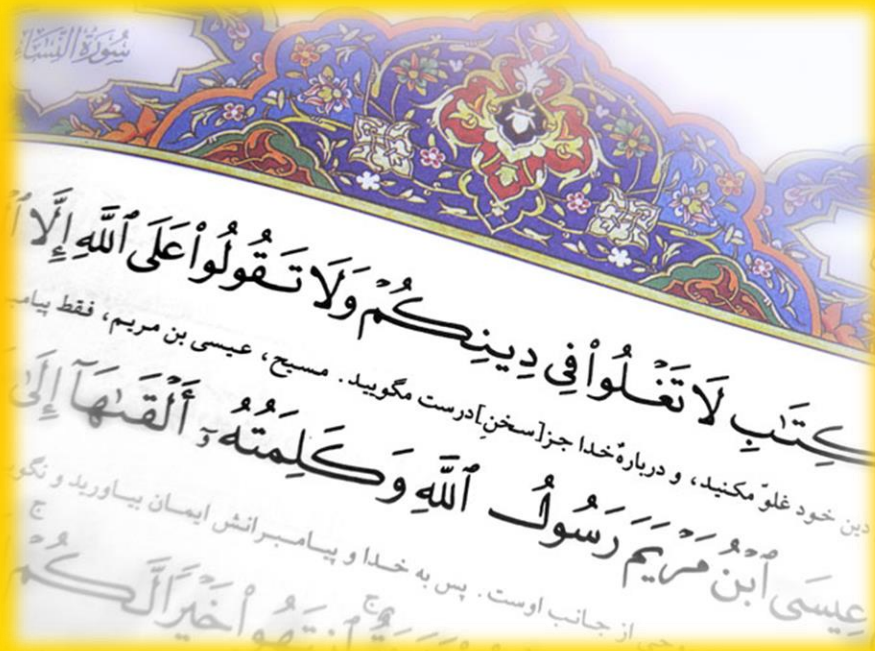 سُورَةُ النِّسَاءِ
ٱلْكِتَٰبِ لَا تَغْلُوا۟ فِى دِينِكُمْ وَلَا تَقُولُوا۟ عَلَى ٱللَّهِ إِلَّا
دین خود غلوّ مکنید، و دربارهٔ خدا جز [سخنِ] درست مگویید. مسیح، عیسی بن مریم، فقط
عِيسَى ٱبْنُ مَرْيَمَ رَسُولُ ٱللَّهِ وَكَلِمَتُهُۥٓ أَلْقَىٰهَآ إِلَىٰ
از جانب اوست. پس به خدا و پیامبرانش ایمان بیاورید و
ٱنتَهُوا۟ خَيْرًا لَّكُمْ